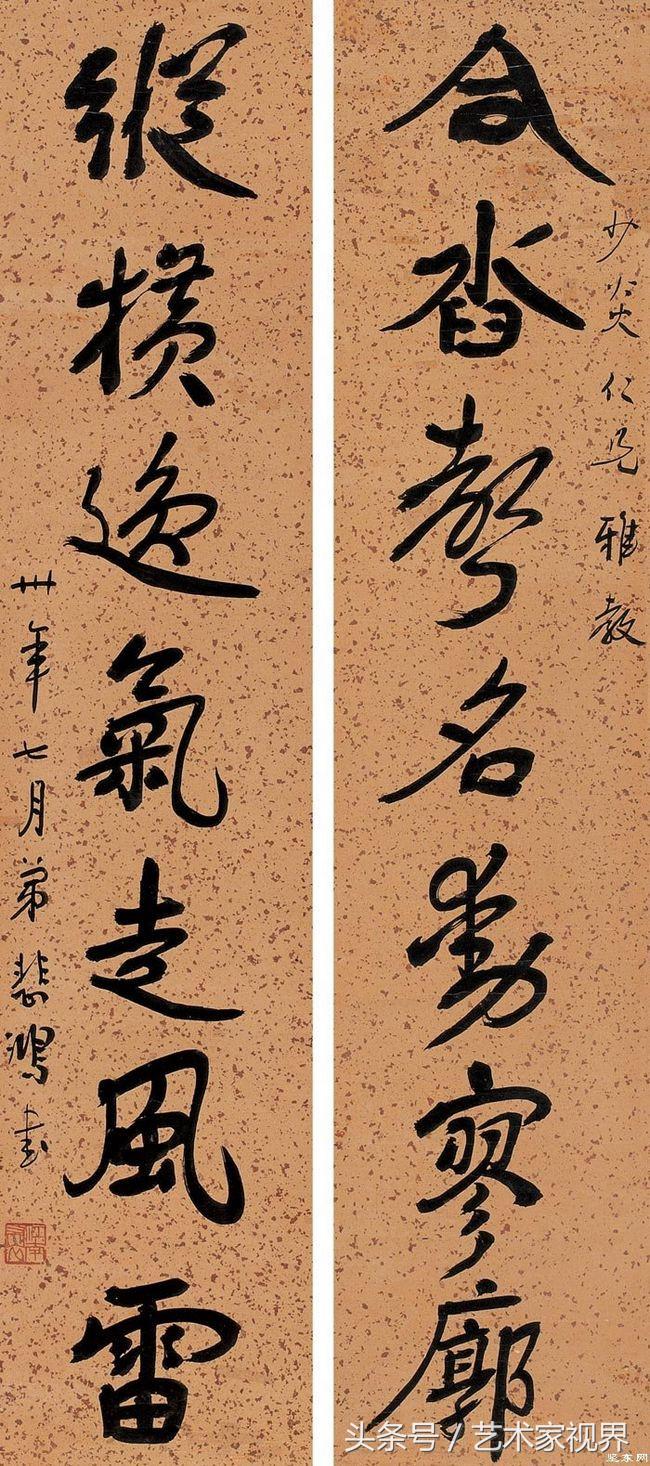 合沓聲名動寥廓
少仁兄雅教
縱橫逸氣走風雷
卅年七月弟悲鴻書
头条号 / 艺术家视界